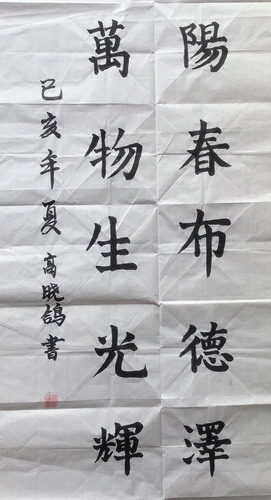 陽春布德澤
萬物生光輝
己亥年夏高晓鸽書